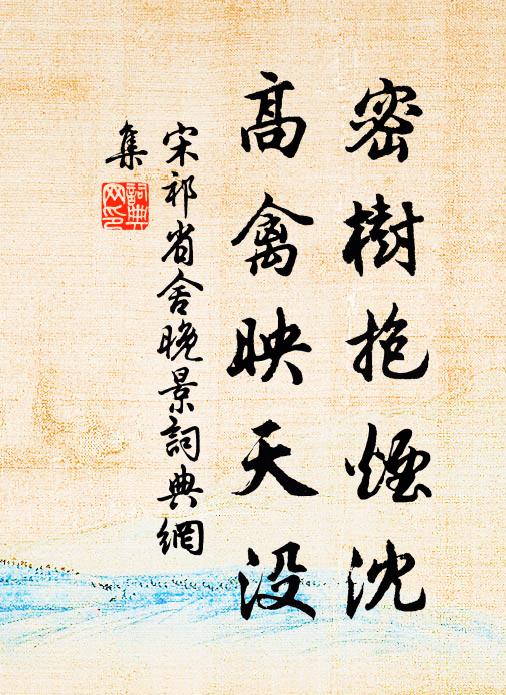 密樹抱煙沈
高禽映天没
宋祁省舍晚景詞典網
集
詞典網印